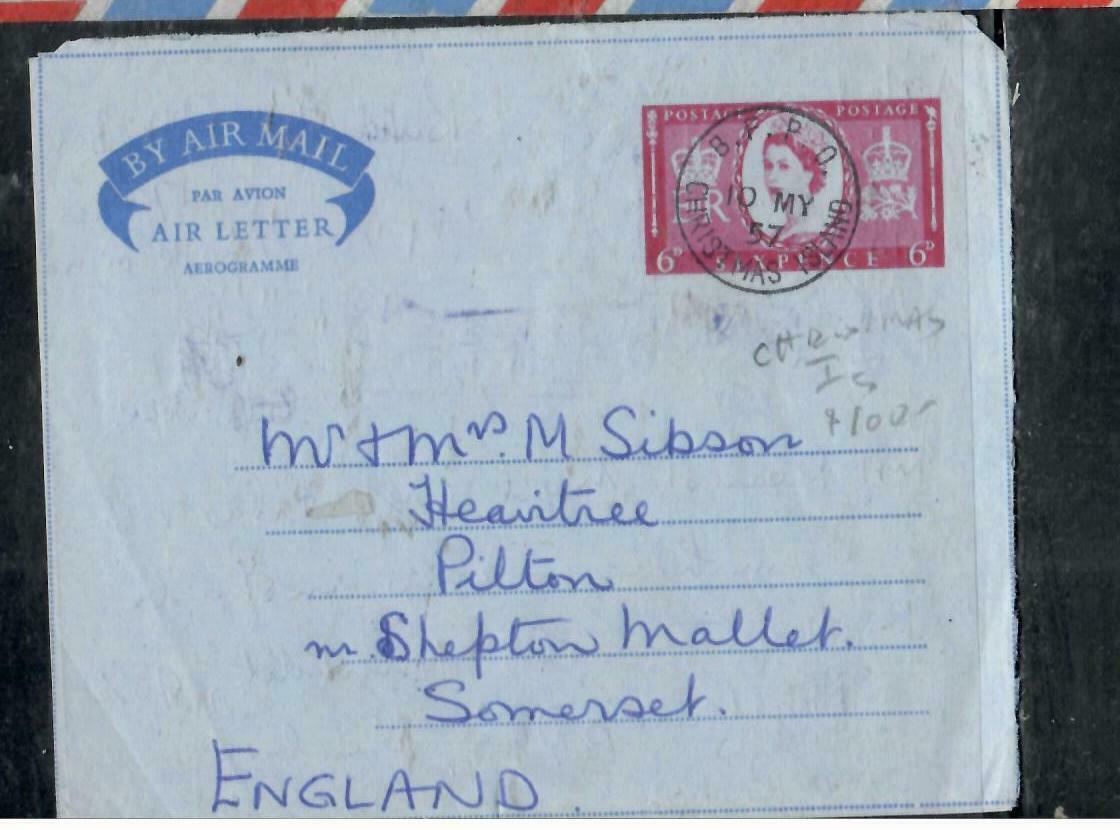 BY AIR MAIL
PAR AVION
AIR LETTER
AEROGRAMME
POSTAGE POSTAGE
E R
6D SIXPENCE 6D
B.F.P.O.
10 MY
57
CHRISTMAS ISLAND
CHRISTMAS
IS
Mr & Mrs. M Sibson
Heavitree
Pilton
nr. Shepton Mallet.
Somerset.
ENGLAND.